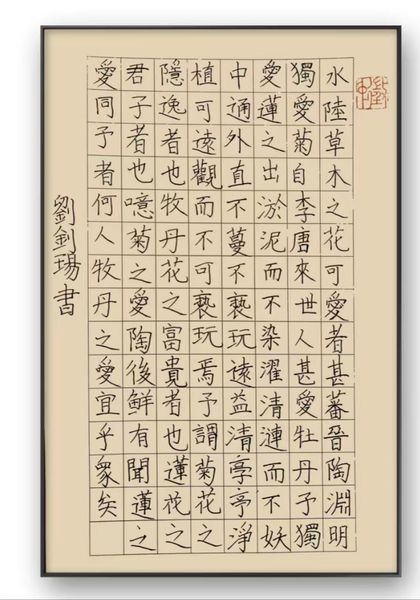 水陸草木之花可愛者甚蕃晉陶淵明
獨愛菊自李唐來世人甚愛牡丹予獨
愛蓮之出淤泥而不染濯清漣而不妖
中通外直不蔓不褻玩遠益清亭亭淨
植可遠觀而不可褻玩焉予謂菊花之
隱逸者也牧丹花之富貴者也蓮花之
君子者也噫菊之愛陶後鮮有聞蓮之
愛同予者何人牧丹之愛宜乎眾矣
劉釗瑒書